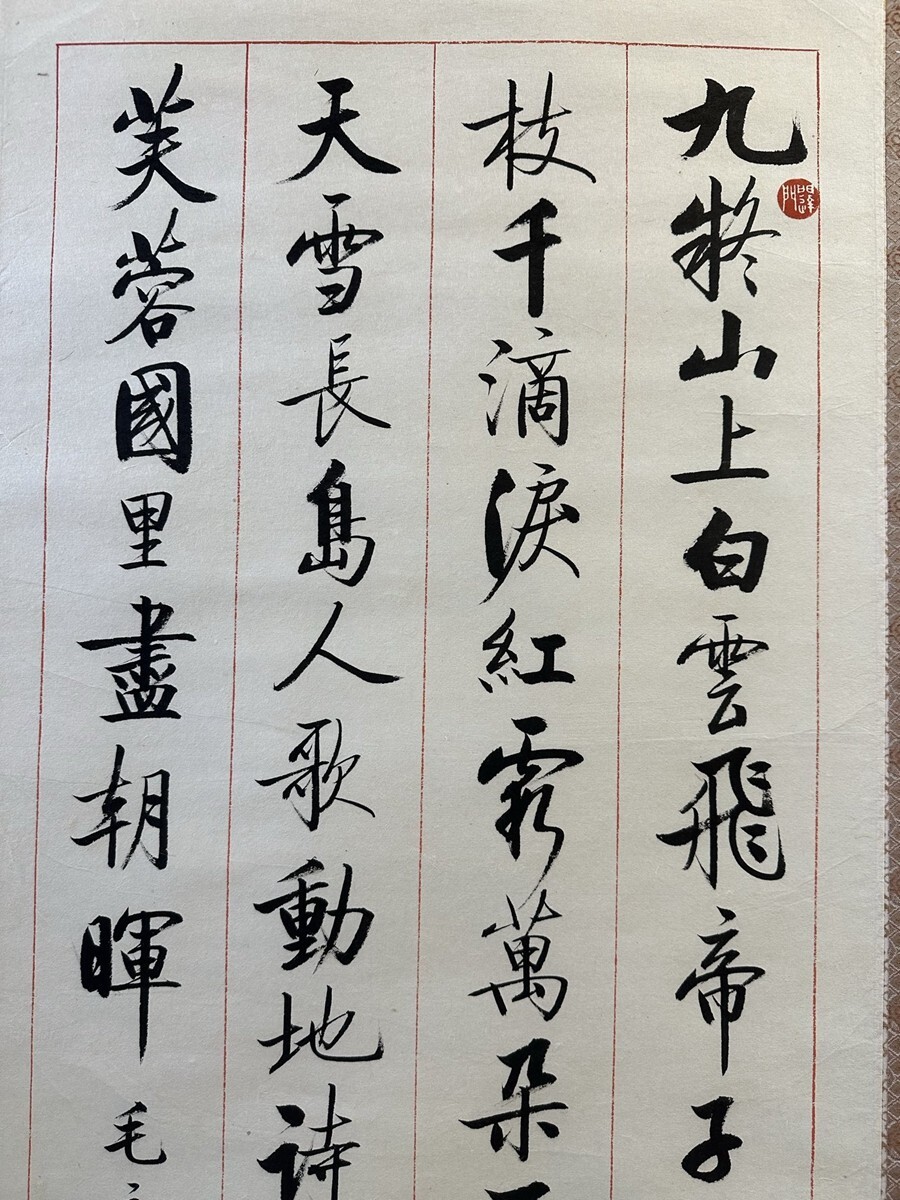 九疑山上白雲飛帝子
枝千滴淚紅霞萬朵
天雪長島人歌動地詩
芙蓉國里盡朝暉毛